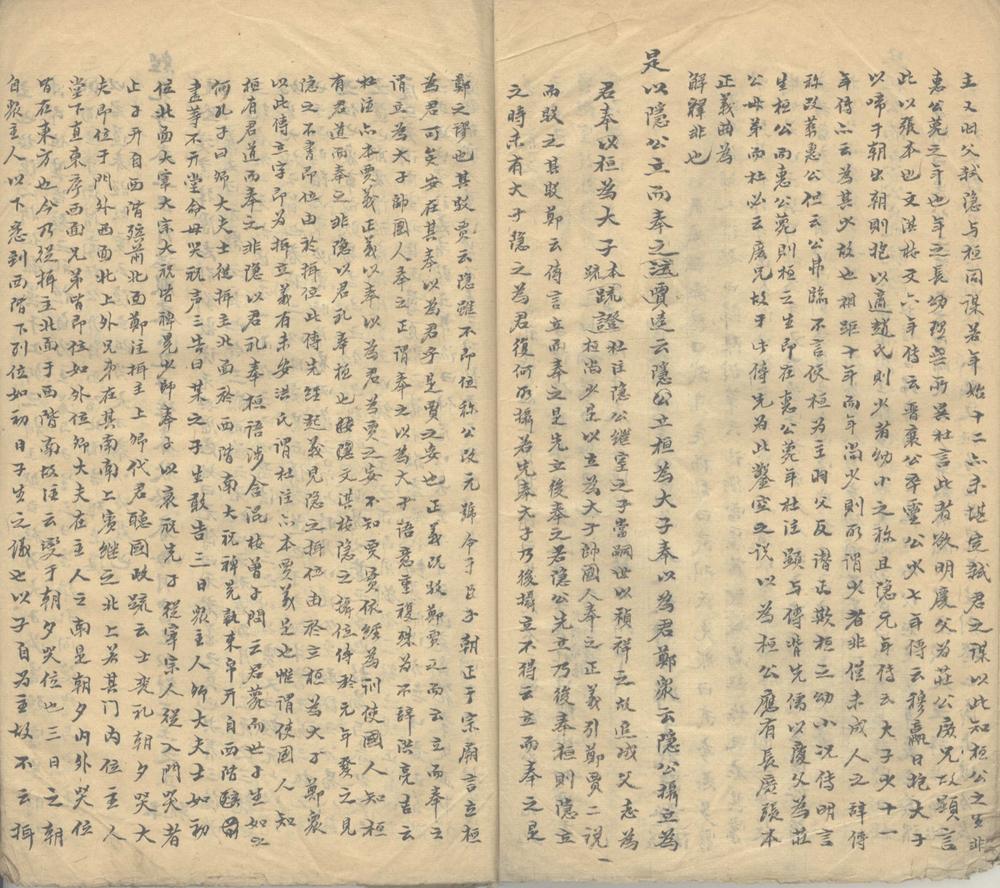 主又曰父弒隱与桓同謀若年始十二亦未堪定弒君之謀以此知桓公之生非
惠公薨之年也年之長幼理無所異杜言此者欲明慶父為莊公庶兄故顯言
此以張本也文淇按文六年傳云晋襄公卒靈公少七年傳云穆嬴日抱大子
以啼于朝出朝則抱以適趙氏則少者幼小之称且隱元年傳云大子少十一
年傳亦云為其少故也相距十年而年尚少則所謂少者非僅未成人之辞傳
称改葬惠公但云公弗臨不言使桓為主羽父反譖
生桓公而惠公薨則桓之生即在惠公薨年杜注顯与傳背先儒以慶父為莊
公母弟而杜必云庶兄故于此傳先為此鑿空之说以為桓公應有長庶張本
正義曲為
解釋非也
是以隱公立而奉之注賈逵云隱公立桓為大子奉以為君鄭衆云隱公攝立為
君奉以桓為大子本疏疏證杜注隱公继室之子當嗣世以禎祥之故追成父志為
桓尚少是以立為大子帥國人奉之正義引鄭賈二说
而駁之其駁鄭云傳言立而奉之是先立後奉之若隱公先立乃後奉桓則隱立
之時未有大子隱之為君復何所攝若先奉大子乃後攝立不得云立而奉之是
鄭之謬也其駁賈云隱雖不即位称公改元號令于臣子朝正于宗廟言立桓
為君可矣安在其奉以為君乎是賈之妄也正義既駁鄭賈又云立而奉之
謂立為大子帥國人奉之正謂奉之以為大子語意重複殊為不辞洪亮吉云
杜注亦本賈義正義以奉以為君為賈之妄不知賈實依經為訓使國人知桓
有君道而奉之非隱以君礼奉桓也文淇按隱之攝位傳於元年發之見
隱之不書即位由於攝位此傳先經起義見隱之攝位由於立桓為大子鄭衆
以此傳立字即為攝立義有未安洪氏謂杜注亦本賈義是也惟謂使國人知
桓有君道而奉之非隱以君礼奉桓語涉含混按曾子問云君薨而世子生如之
何孔子曰卿大夫士從攝主北面於西階南大祝裨冕執束帛升自西階
盡等不升堂命毋哭祝声三告曰某之子生敢告三日衆主人卿大夫士如初
位北面大宰大宗大祝皆裨冕少師奉子以衰祝先子從宰宗人從入門哭者
止子升自西階殯前北面鄭注攝主上卿代君聽國政疏云士喪礼朝夕哭大
夫即位于門外西面北上外兄弟在其南南上賓继之北上若其门内位主人
堂下直東序西面兄弟皆即位如外位卿大夫在主人之南是朝夕内外哭位
皆在東方也今乃從攝主北面于西階南故注云變于朝夕哭位也三日之朝
自衆主人以下悉到西階下列位如初日子生之議也以子自為主故不云攝